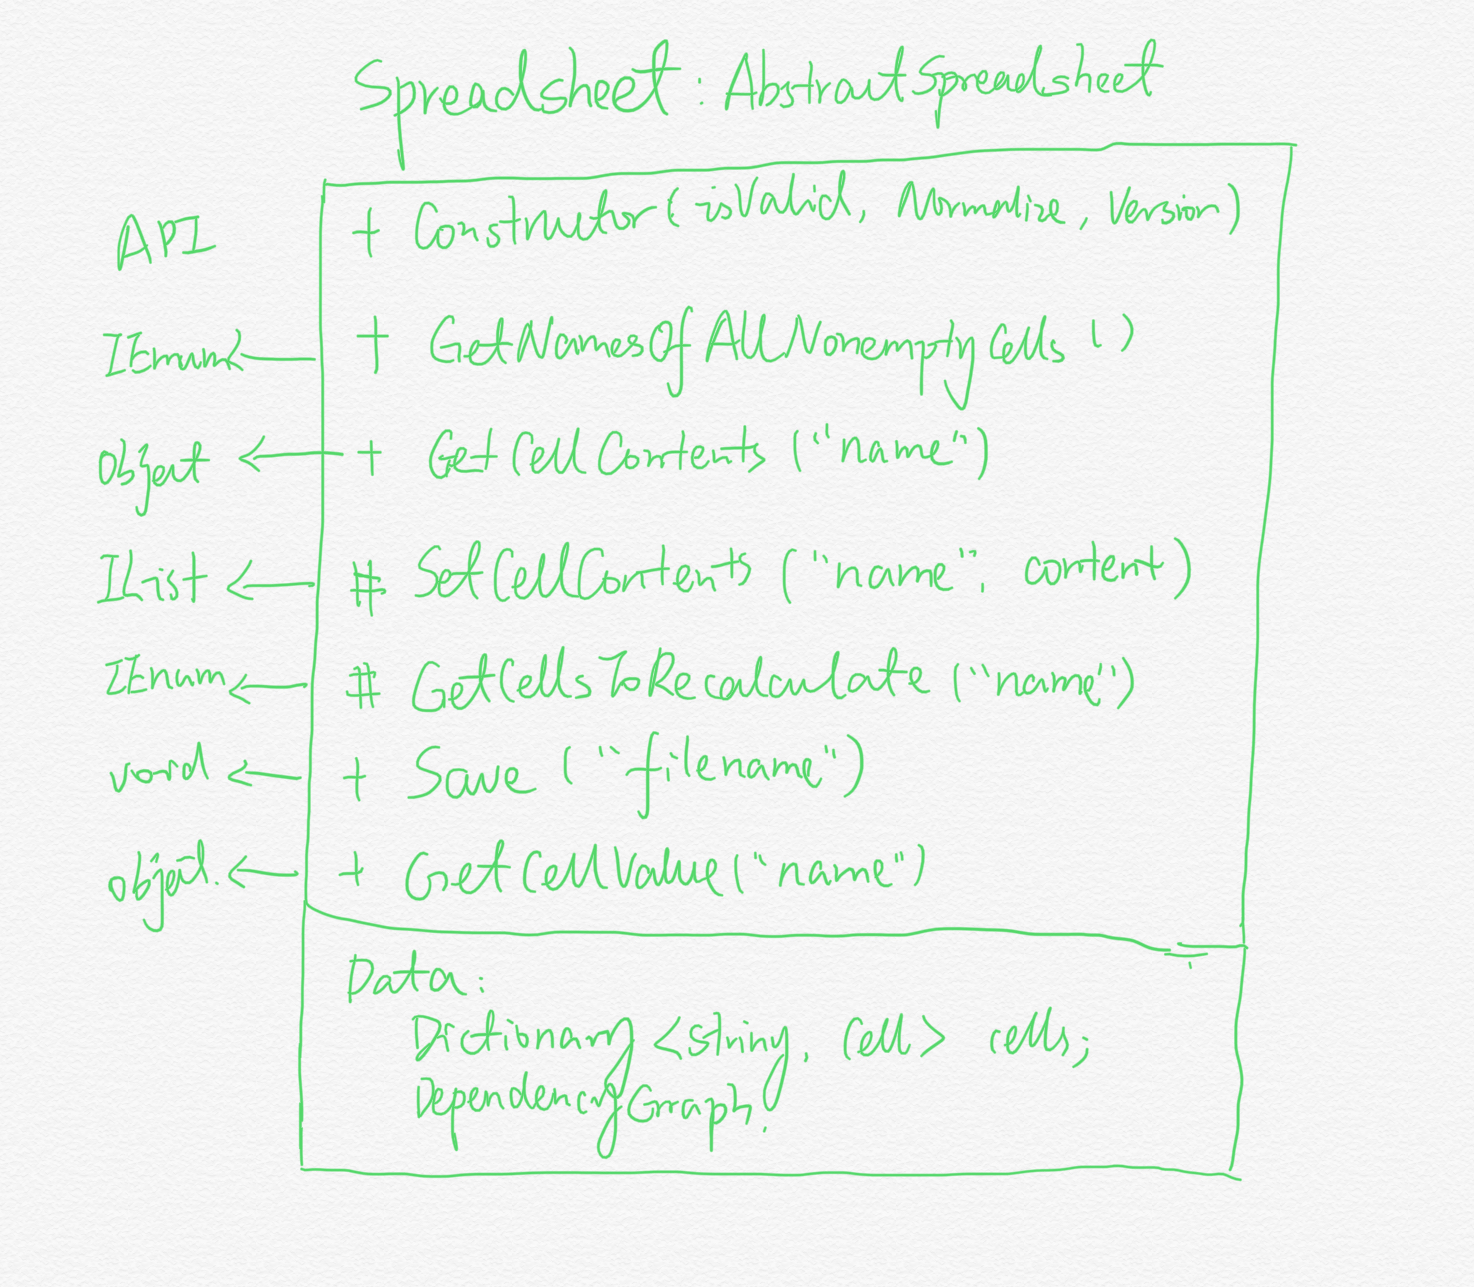 Spreadsheet : AbstractSpreadsheet
API + Constructor ( isValid, Normalize, Version )
IEnum ← + GetNamesOfAllNonemptyCells ( )
object ← + GetCellContents ("name")
IList ← # SetCellContents ("name", content)
IEnum ← # GetCellsToRecalculate ("name")
void ← + Save ("filename")
object. ← + GetCellValue ("name")
Data:
Dictionary <string, Cell> cells;
DependencyGraph;